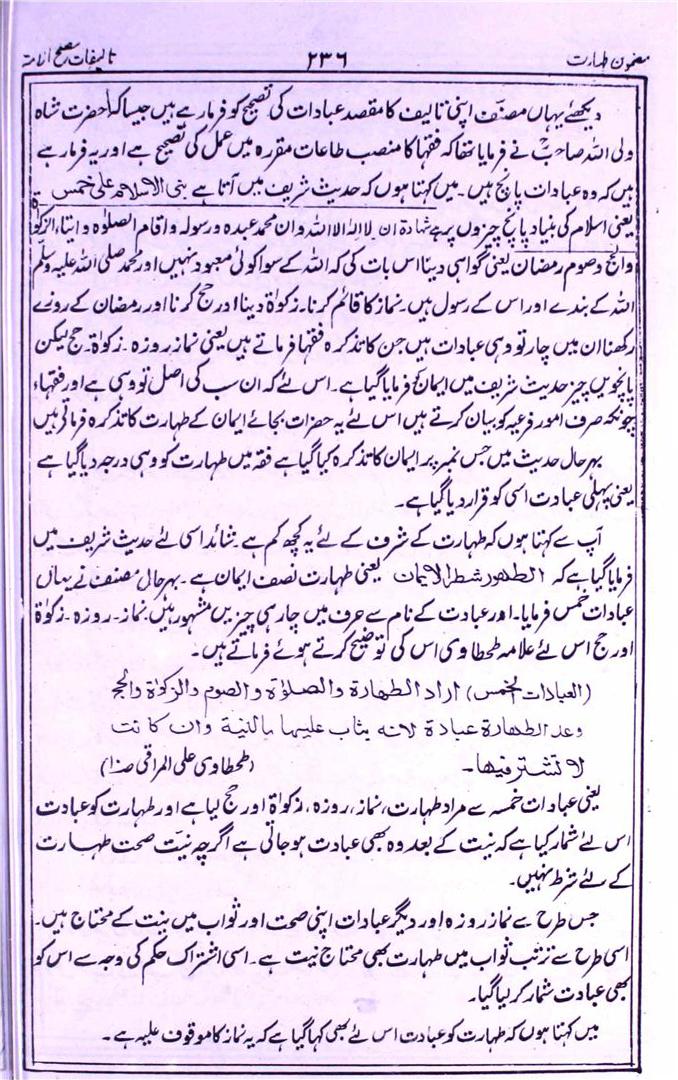 مضمون طہارت ۲۳۶ تالیفات مصلح الامتہ
دیکھئے یہاں مصنّف اپنی تالیف کا مقصد عبادات کی تصحیح کو فرمارہے ہیں جیسا کہ حضرت شاہ
ولی اللہ صاحبؒ نے فرمایا تھا کہ فقہا کا منصب طاعات مقررہ میں عمل کی تصحیح ہے اور یہ فرمارہے
ہیں کہ وہ عبادات پانچ ہیں۔ میں کہتا ہوں کہ حدیث شریف میں آتا ہے بنی الاسلام علی خمس
یعنی اسلام کی بنیاد پانچ چیزوں پر ہے شہادۃ ان لا الہ الا اللہ وان محمد عبدہ ورسولہ واقام الصلوٰہ وایتاء الزکوٰۃ
والحج وصوم رمضان یعنی گواہی دینا اس بات کی کہ اللہ کے سوا کوئی معبود نہیں اور محمد صلی اللہ علیہ وسلم
اللہ کے بندے اور اس کے رسول ہیں۔ نماز کا قائم کرنا۔ زکوٰۃ دینا اور حج کرنا اور رمضان کے روزے
رکھنا ان میں چار تو وہی عبادات ہیں جن کا تذکرہ فقہا فرماتے ہیں یعنی نماز۔ روزہ۔ زکوٰۃ۔ حج لیکن
پانچویں چیز حدیث شریف میں ایمان کو فرمایا گیا ہے۔ اس لئے کہ ان سب کی اصل تو وہی ہے اور فقہاء
چونکہ صرف امور فرعیہ کو بیان کرتے ہیں اس لئے یہ حضرات بجائے ایمان کے طہارت کا تذکرہ فرماتی ہیں
بہر حال حدیث میں جس نمبر پر ایمان کا تذکرہ کیا گیا ہے فقہ میں طہارت کو وہی درجہ دیا گیا ہے
یعنی پہلی عبادت اسی کو قرار دیا گیا ہے۔
آپ سے کہتا ہوں کہ طہارت کے شرف کے لئے یہ کچھ کم ہے شائد اسی لئے حدیث شریف میں
فرمایا گیا ہے کہ الطہور شطر الایمان یعنی طہارت نصف ایمان ہے۔ بہر حال مصنف نے یہاں
عبادات خمس فرمایا۔ اور عبادت کے نام سے عرف میں چار ہی چیزیں مشہور ہیں۔ نماز۔ روزہ۔ زکوٰۃ
اور حج اس لئے علامہ طحطاوی اس کی توضیح کرتے ہوئے فرماتے ہیں۔
(العبادات الخمس) اراد الطھارۃ والصلوٰۃ والصوم والزکوٰۃ والحج
وعد الطھارۃ عبادۃ لانہ یثاب علیہا بالنیۃ وان کانت
لا تشترفیہا۔ (طحطاوی علی المراقی صذا)
یعنی عبادات خمسہ سے مراد طہارت، نماز، روزہ، زکوٰۃ اور حج لیا ہے اور طہارت کو عبادت
اس لئے شمار کیا ہے کہ نیت کے بعد وہ بھی عبادت ہو جاتی ہے اگرچہ نیّت صحت طہارت
کے لئے شرط نہیں۔
جس طرح سے نماز روزہ اور دیگر عبادات اپنی صحت اور ثواب میں نیت کے محتاج ہیں۔
اسی طرح سے ترتب ثواب میں طہارت بھی محتاج نیت ہے۔ اسی اشتراک حکم کی وجہ سے اس کو
بھی عبادت شمار کر لیا گیا۔
میں کہتا ہوں کہ طہارت کو عبادت اس لئے بھی کہا گیا ہے کہ یہ نماز کا موقوف علیہ ہے۔